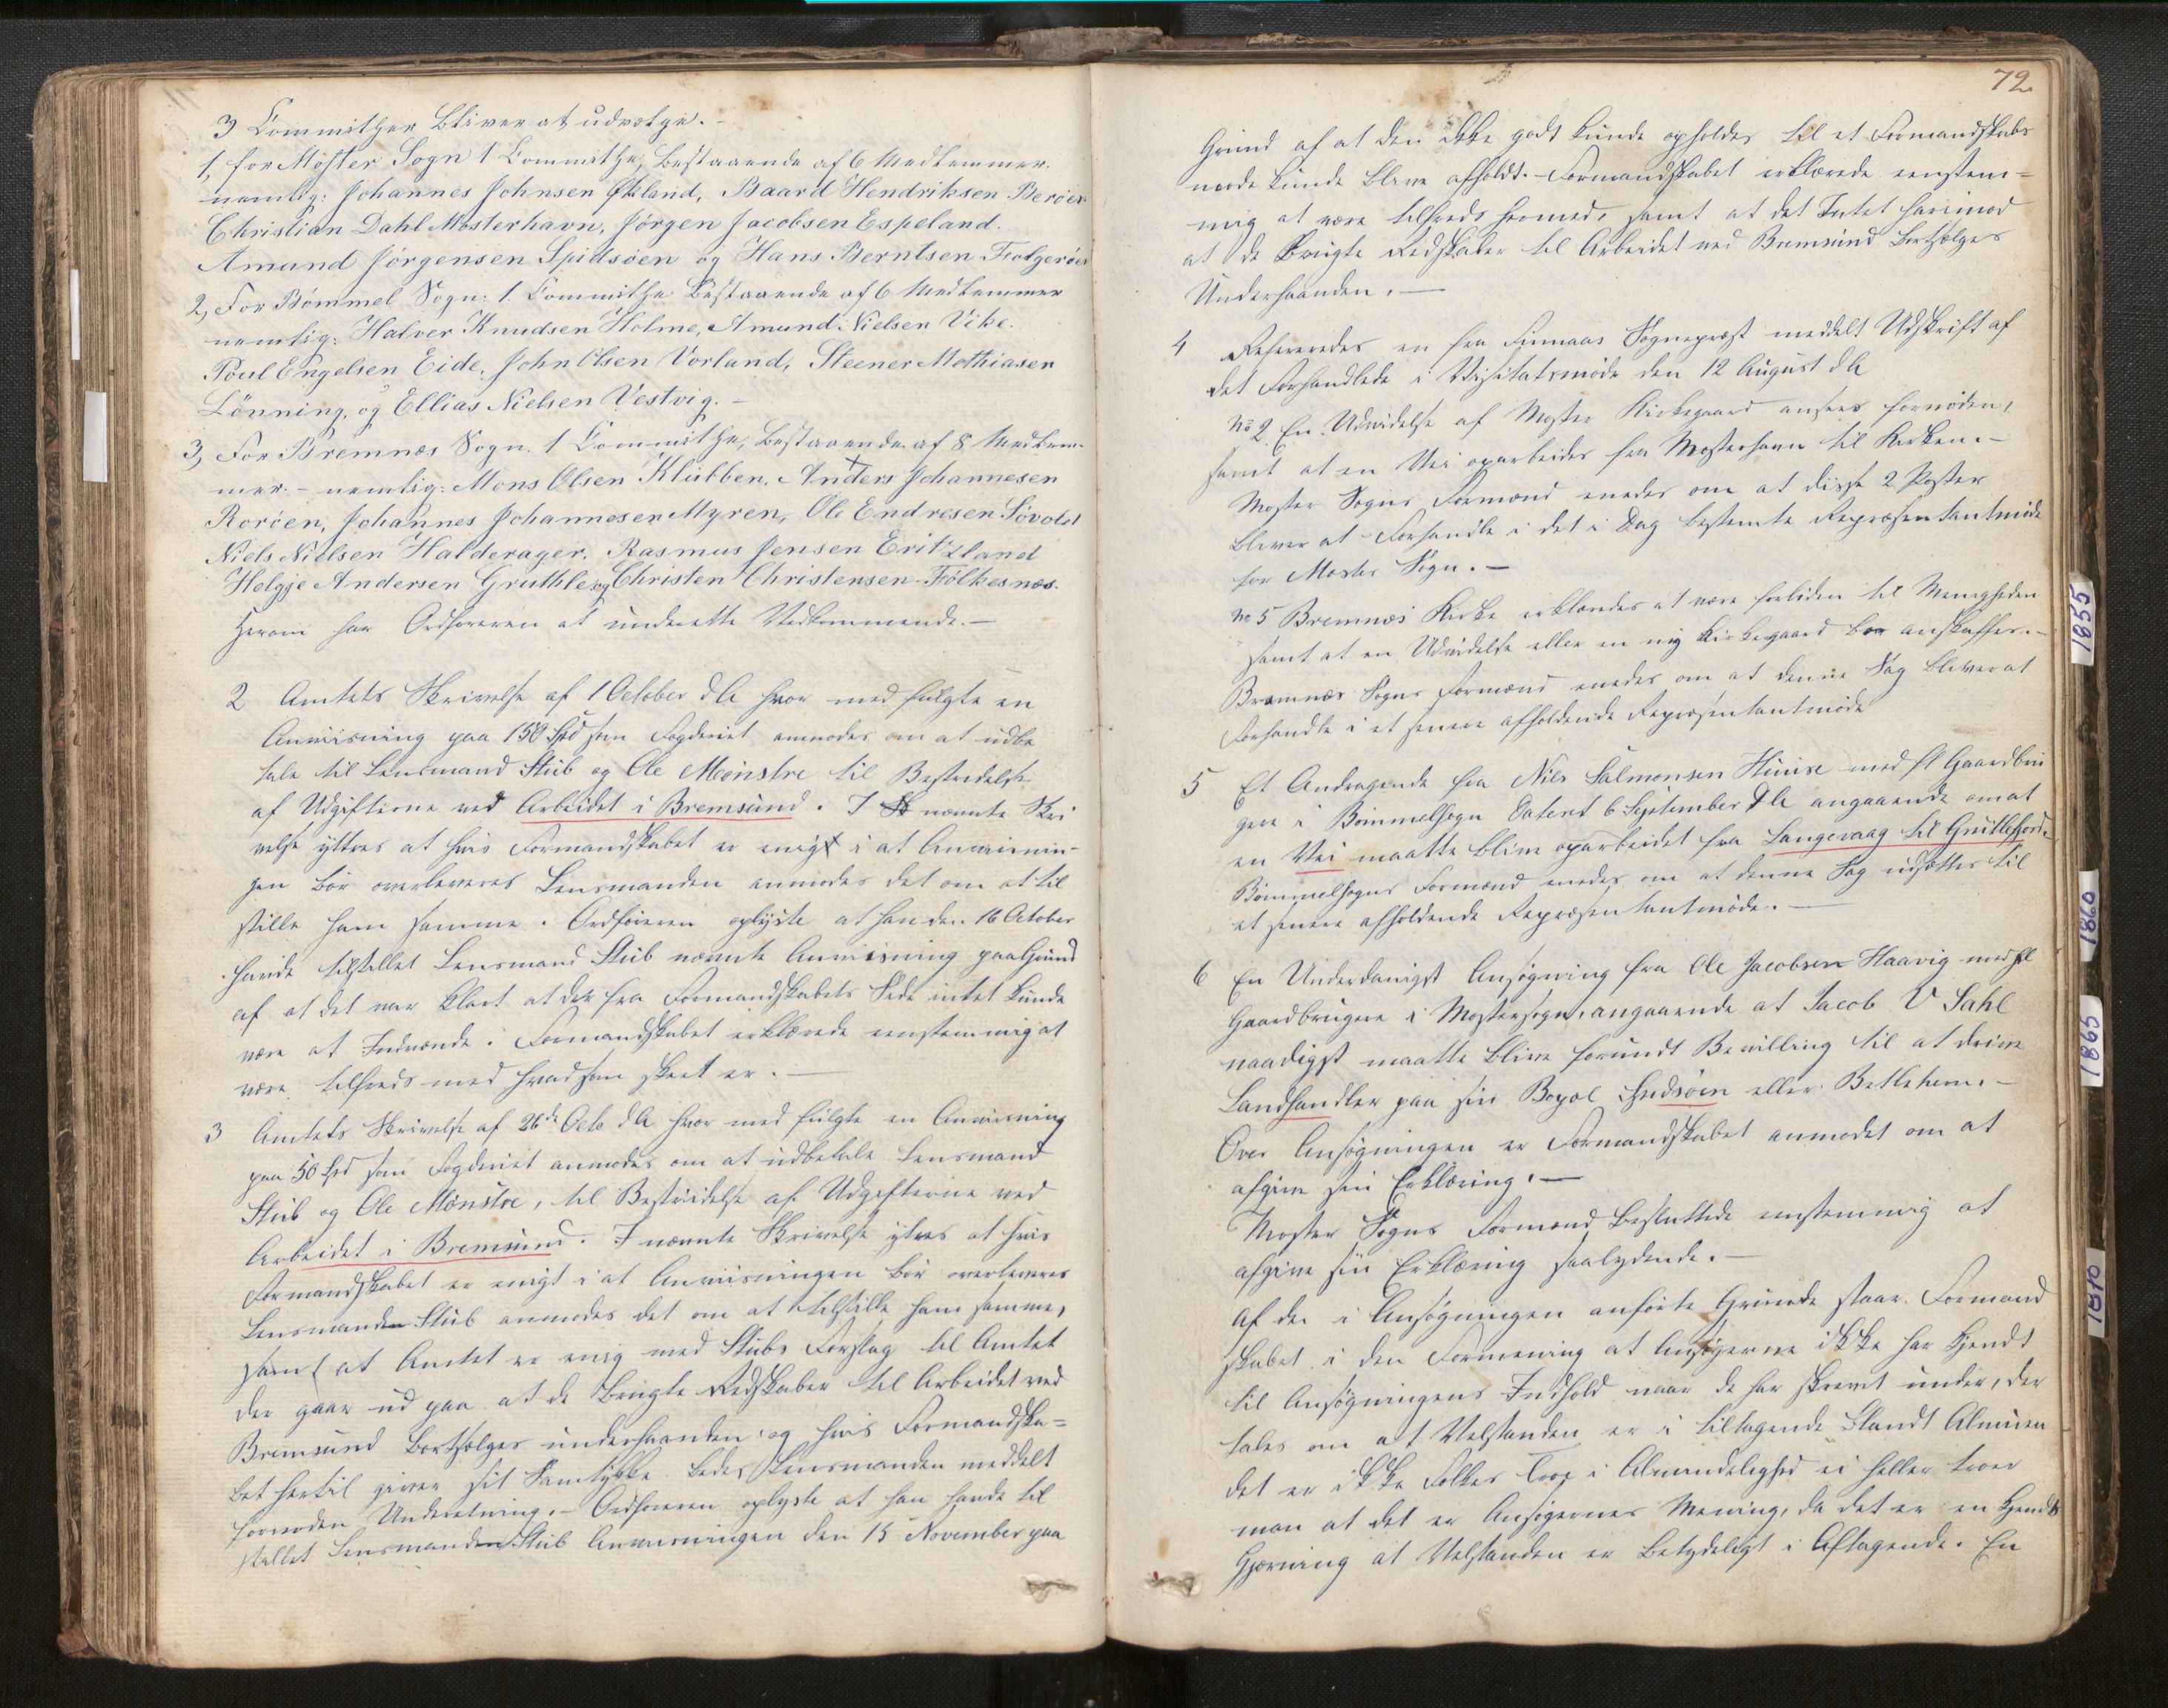 3 Committeer bliver at udvælge. -
1, for Møster Sogn 1 Committe, bestaaende af 6 Medlemmer.
nemlig: Johannes Johnsen Økland, Baard Hendriksen Berøen
Christian Dahl Mosterhavn, Jørgen Jacobsen Espeland.
Amund Jørgensen Spidsøen og Hans Berntsen Folgerøen
2, For Bømmel Sogn: 1. Committe bestaaende af 6 Medlemmer
nemlig: Halver Knudsen Holme, Amund Nielsen Vike.
Poul Engelsen Eide, John Olsen Vorland, Steener Mathiasen
Lønning, og Ellias Nielsen Vestvig. -
3, For Bremnæs Sogn. 1 Committe, bestaaende af 8 Medlem-
mer. - nemlig: Mons Olsen Klubben, Anders Johannesen
Rorøen, Johannes Johannesen Myren, Ole Endresen Søvold
Niels Nielsen Halderager. Rasmus Jensen Eritzland
Helgje Andersen Gruthle og Christen Christensen Folkesnæs.
Herom har Ordføreren at underrette Vedkommende. -
2 Amtets Skrivelse af 1 October d A hvor med fulgte en
Anviisning paa 150 Spd som Fogderiet anmodes om at udbe
tale til Lensmand Stub og Ole Meenstre til Bestridelse
af Udgifterne ved Arbeidet i Bremsund. I nævnte Skri
velse yttres at hvis Formandskabet er enigt i at Anviisnin-
gen bør overleveres Lensmanden anmodes det om at til
stille ham samme. Ordføreren oplyste at han den 16 October
havde tilstillet Lensmand Stub nævnte Anviisning paa Grund
af at det var klart at der fra Formandskabets Side intet kunde
være at Indvende. Formandskabet erklærede eenstemmig at
være tilfreds med hvad som skeet er. -
3 Amtets Skrivelse af 26de Octo d A hvor med fulgte en Anviisning
paa 50 Spd som Fogderiet anmodes om at udbetale Lensmand
Stub og Ole Mønstre, til Bestridelse af Udgifterne ved
Arbeidet i Bremsund. I nævnte Skrivelse ytres at hvis
Formandskabet er enigt i at Anviisningen bør overleveres
Lensmanden Stub anmodes det om at tilstille ham samme,
samt at Amtet er enig med Stubs Forslag til Amtet
der gaar ud paa at de brugte Redskaber til Arbeidet ved
Bremsund bortsælges underhaanden og hvis Formandska=
bet hertil giver sit Samtykke bedes Lensmanden meddelt
fornøden Underretning. - Ordføreren oplyste at han havde til
stillet Lensmanden Stub Anviisningen den 15 November paa
72.
Grund af at den ikke godt kunde opholdes til et Formandskabs
møde kunde blive afholdt. - Formandskabet erklærede eenstem=
mig at være tilfreds hermed, samt at det Intet har imod
at de brugte Redskaber til Arbeidet ved Bremsund bortsælges
Underhaanden. -
4 Refereredes en fra Finnaas Sognepræst meddelt Udskrift af
det Forhandlede i Visitatsmøde den 12 August d A
No 2. En Udvidelse af Moster Kirkegaard ansees fornøden,
samt at en Vei oparbeides fra Mosterhavn til Kirken. -
Moster Sogns Formænd enedes om at disse 2 Poster
bliver at Forhandle i det i Dag bestemte Repræsentantmøde
for Moster Sogn. -
No 5 Bremnæs Kirke erklæredes at være forliden til Menigheden
samt at en Udvidelse eller en ny Kirkegaard bør anskaffes. -
Bremnæs Sogns Formænd enedes om at denne Sag bliver at
Forhandle i et senere afholdende Repræsentantmøde
5 Et Andragende fra Niels Salmonsen Hiinse med fl Gaardbru
gere i Bømmelsogn Dateret 6 September d A angaaende om at
en Vei maatte blive oparbeidet fra Langevaag til Grutlefjord.
Bømmelsogns Formænd enedes om at denne Sag udsættes til
et senere afholdende Repræsentantmøde. -
6 En Underdanigst Ansøgning fra Ole Jacobsen Haavig med fl
Gaardbrugere i Mostersogn, angaaende at Jacob V Sahl
naadigst maatte blive forundt Bevilling til at drive
Landhandler paa sin Bopæl Indsøen eller Betlehem. -
Over Ansøgningen er Formandskabet anmodet om at
afgive sin Erklæring. -
Moster Sogns Formænd besluttede eenstemmig at
afgive sin Erklæring saalydende. -
Af de i Ansøgningen anførte Grunde staar Formand
skabet i den Formening at Ansøgerne ikke har kjendt
til Ansøgningens Indhold naar de har skrevet under, der
tales om at Velstanden er i tiltagende blandt Almuen
det er ikke Folkes Trop i Almindelighed ei heller troer
man at det er Ansøgernes Mening, da det er en kjendt
Gjerning at Velstanden er betydeligt i Aftagende. En
1855
1860
1865
1870